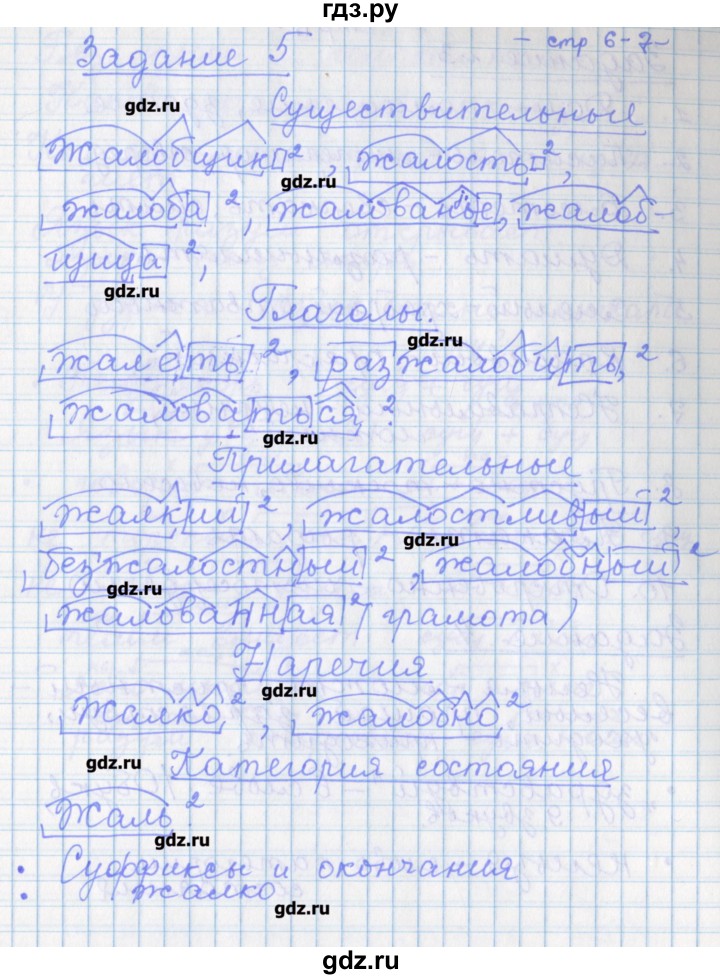 гдз.ру
- стр 6-7-
Задание 5
gdz.ru
Существительные
жалобщик ², жалость ²,
gdz.ru
жалоба ², жалованье, жалоб-
щица ²,
gdz.ru
Глаголы.
gdz.ru
жалеть ², разжалобить, ²
жаловаться, ²
gdz.ru
Прилагательные
жалкий ², жалостливый ²,
gdz.ru
безжалостный ², жалобный ²
gdz.ru
жалованная ² (грамота)
Наречия
gdz.ru
жалко ², жалобно ²
gdz.ru
Категория состояния
жаль ².
gdz.ru
Суффиксы и окончания
жалко
gdz.ru
gdz.ru